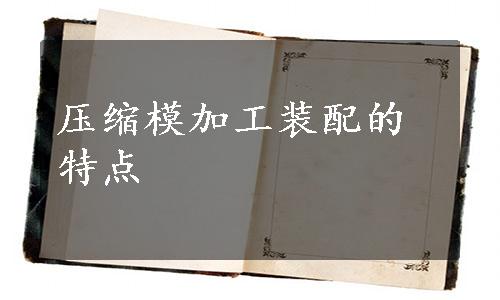 压缩模加工装配的
特点